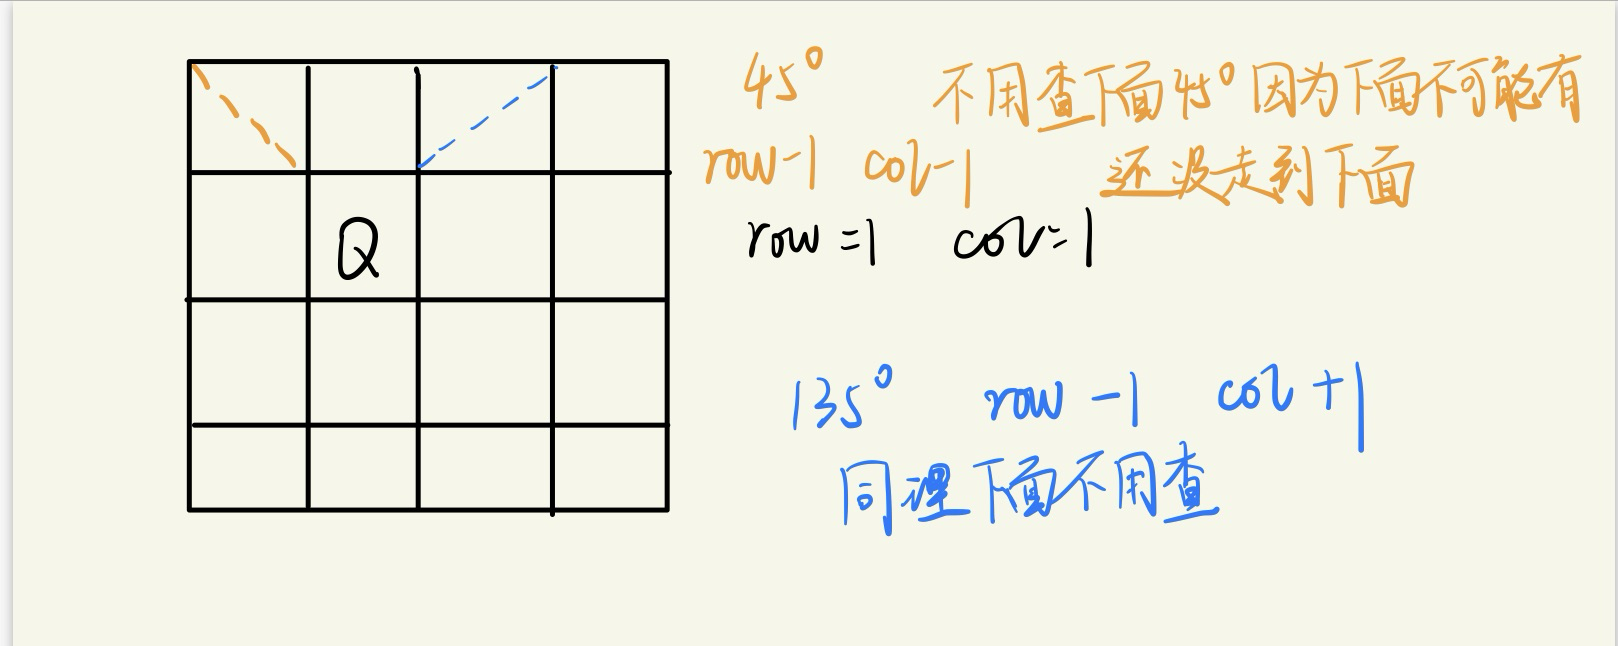 45° 不用查下面45°因为下面不可能有
row-1 col-1 还没走到下面
Q row=1 col=1
135° row-1 col+1
同理下面不用查